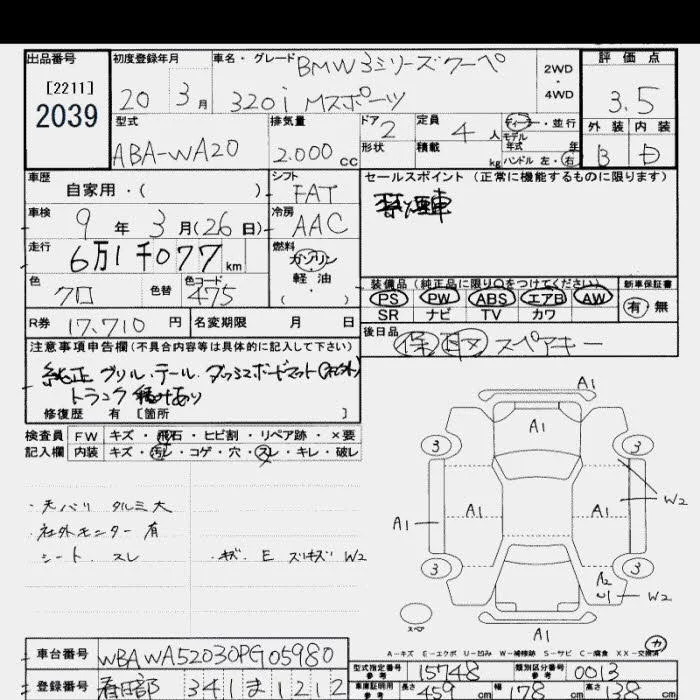 出品番号 初度登録年月 車名・グレード BMW3シリーズクーペ 2WD・4WD 評価点
[2211]
2039
20年3月 320i Mスポーツ 3.5
型式 排気量 ドア 2 定員 4人 ディーラー・並行 外装 内装
モデル年式 年
ABA-WA20 2.000cc 形状 積載 kg ハンドル 左・右 B D
車歴 シフト セールスポイント(正常に機能するものに限ります)
自家用・( ) FAT 禁煙車
車検 冷房
9年3月(26日) AAC
走行 燃料
6万1千077km ガソリン・軽油・( )
色 色替 色コード 装備品(純正品に限り○をつけてください) 新車保証書
クロ 475 PS PW ABS エアB AW 有・無
SR ナビ TV カワ
R券 17,710円 名変期限 月 日 後日品 保 取 スペアキー
注意事項申告欄(不具合内容等は具体的に記入して下さい)
純正グリル・テール・ダッシュボードマット
トランク積みあり
修復歴 有 [箇所 ]
検査員 FW キズ・飛石・ヒビ割・リペア跡・×要
記入欄 内装 キズ・汚れ・コゲ・穴・スレ・キレ・破レ
・天バリ タルミ大
・社外モニター有
シート・スレ ・キズ・E スリキズ W2
A1
A1
3 3
W2
A1 A1 A1
3 3
A2
U1 W2
スペア
A1
カ
A-キズ E-エクボ U-凹み W-補修跡 S-サビ C-腐食 XX-交換済
車台番号 WBAWA52030PG05980 型式指定番号 参考 15748 類別区分番号 参考 0013
登録番号 春日部 341 ま 1212 車庫証明用 参考 長さ 459cm 幅 178cm 高さ 138cm